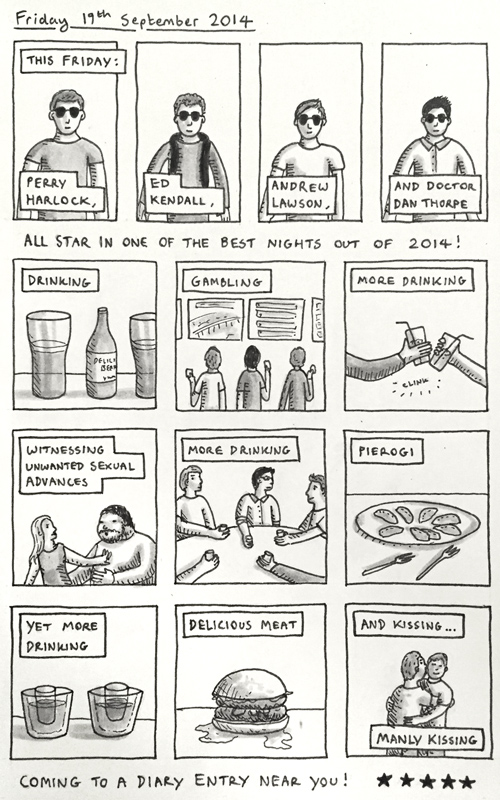 Friday 19th September 2014
THIS FRIDAY:
PERRY
HARLOCK,
ED
KENDALL,
ANDREW
LAWSON,
AND DOCTOR
DAN THORPE
ALL STAR IN ONE OF THE BEST NIGHTS OUT OF 2014!
DRINKING
GAMBLING
MORE DRINKING
CLINK
WITNESSING
UNWANTED SEXUAL
ADVANCES
MORE DRINKING
PIEROGI
YET MORE
DRINKING
DELICIOUS MEAT
AND KISSING...
MANLY KISSING
COMING TO A DIARY ENTRY NEAR YOU! ★★★★★